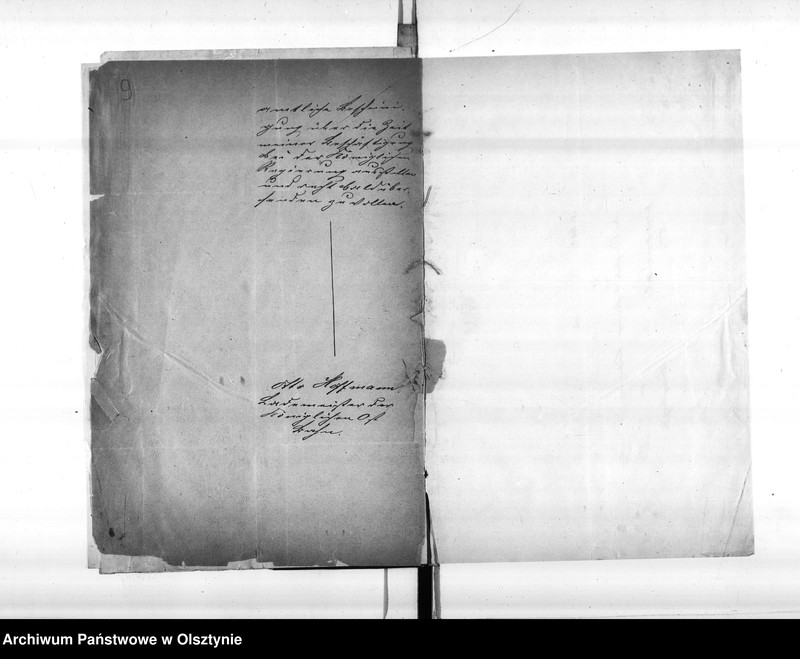 9
amtliche Bescheini-
gung über die Zeit
meiner Beschäftigung
bei der Königlichen
Regierung ausstellen
und recht bald über-
senden zu wollen.
Otto Hoffmann
Lademeister der
Königlichen Ost
bahn.
Archiwum Państwowe w Olsztynie